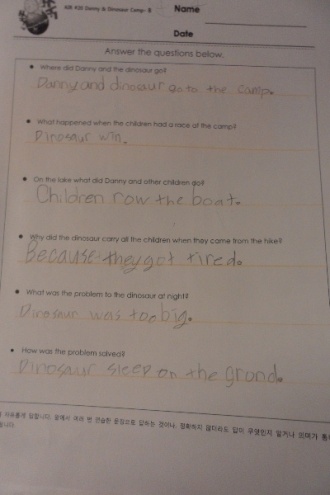 AR 430 Danny & Dinosaur Camp- B
Name
Date
Answer the questions below.
Where did Danny and the dinosaur go?
Danny and dinosaur go to the camp.
What happened when the children had a race at the camp?
Dinosaur win.
On the lake what did Danny and other children go?
Children row the boat.
Why did the dinosaur carry all the children when they came from the hike?
Because they got tired.
What was the problem to the dinosaur at night?
Dinosaur was toe big.
How was the problem solved?
Dinosaur sleep on the grond.